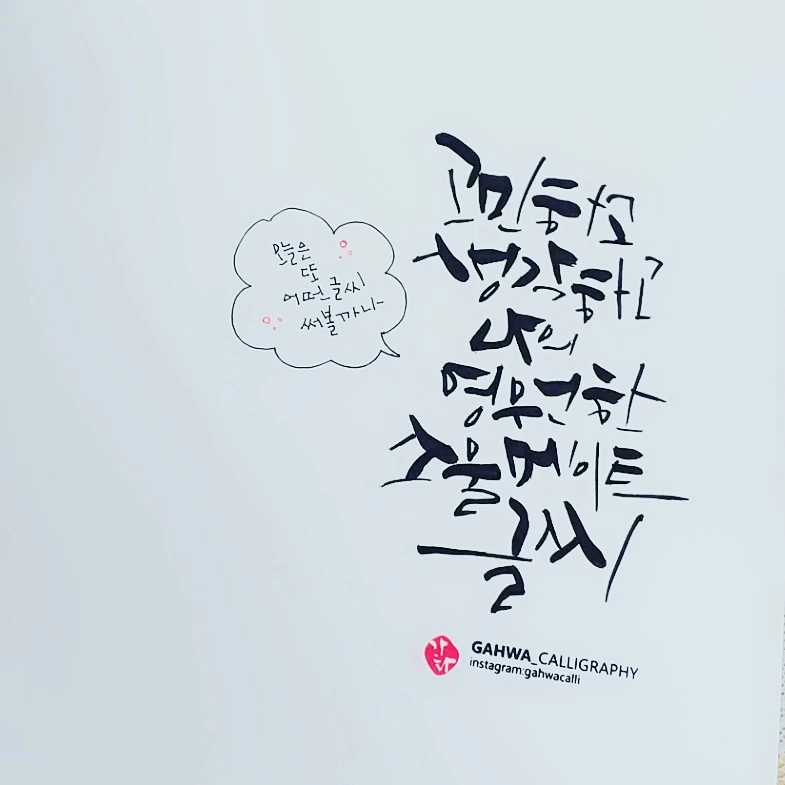 오늘은
또
어떤글씨
써볼까나~
고민하고
생각하고
나의
영우언한
소울메이트
글씨
가화
GAHWA_CALLIGRAPHY
instagram:gahwacalli